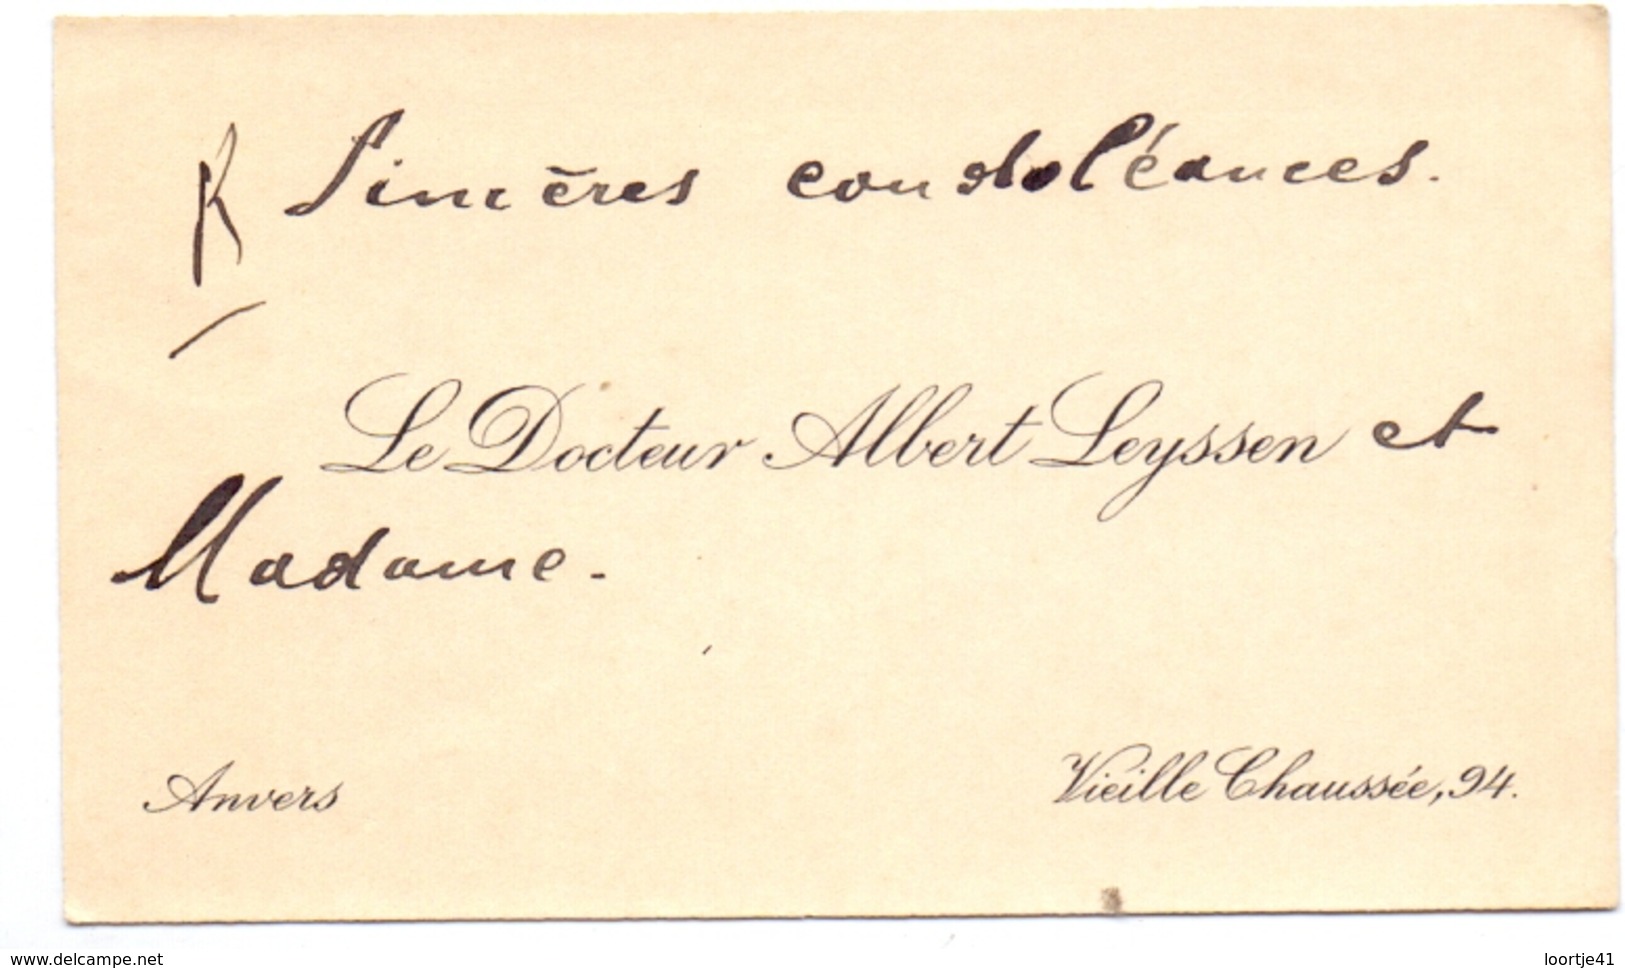 R Sincères condoléances.
Le Docteur Albert Leyssen et
Madame.
Anvers
Vieille Chaussée, 94.
www.delcampe.net
loortje41